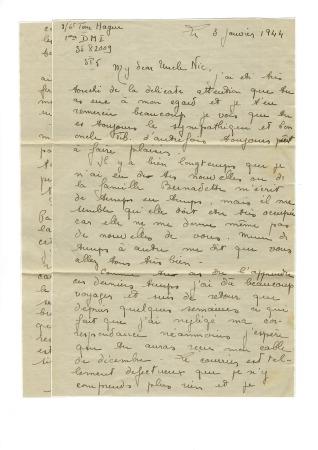 S/Lt Tom Hagur
1ère DMI
SP 5
le 3 Janvier 1944
My dear Uncle Nic,
J'ai été très
touché de la délicate attention que tu
as eue à mon égard et je t'en
remercie beaucoup je vois que tu
es toujours le sympathique et bon
oncle d'autrefois toujours prêt
à faire plaisir.
Il y a bien longtemps que je
n'ai eu de tes nouvelles ou de
la famille Bernadette m'écrit
de temps en temps, mais il me
semble qu'elle doit être très occupée
car elle ne me donne même pas
de nouvelles de vous. de
temps à autre me dit que vous
allez tous très bien.
Comme tu as dû l'apprendre
ces derniers temps j'ai dû beaucoup
voyager et suis de retour que
depuis quelques semaines ce qui
fait que j'ai négligé ma cor-
respondance néanmoins j'espère
que tu auras reçu mon cable
de décembre. Le courrier est tel-
lement défectueux que je n'y
comprends plus rien et je